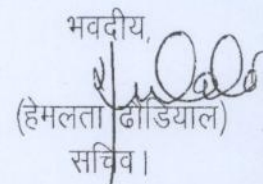 भवदीय,
(हेमलता ढौंडियाल)
सचिव।